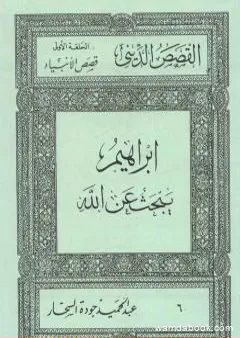 القصص الديني
الحلقة الأولى
قصص الأنبياء
ابراهيم
يبحث عن الله
٦
عبد الحميد جودة السحار
wamdabook.com